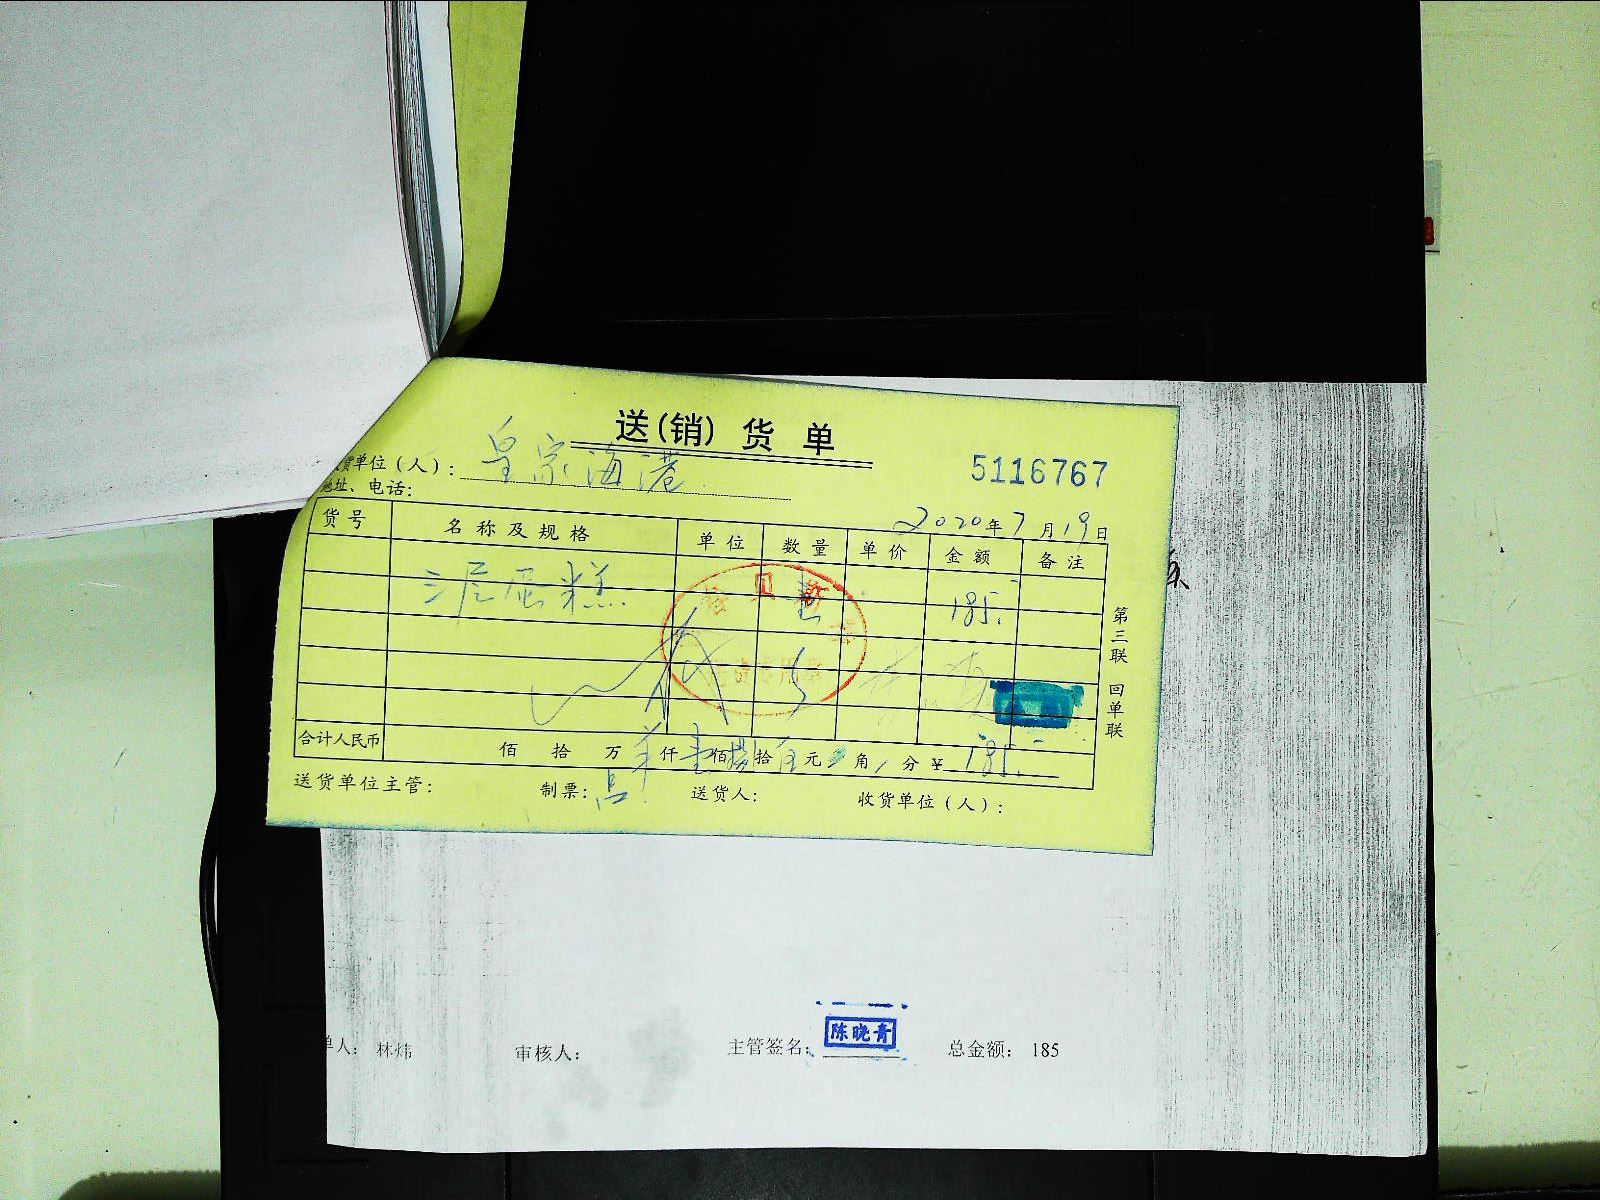 送(销)货单
货单位(人): 皇家海港
5116767
地址、电话:
2020年7月19日
货号 名称及规格 单位 数量 单价 金额 备注
三层蛋糕 壹 185.
第三联 回单联
合计人民币 佰 拾 万 仟 壹佰 捌拾 元 角 分 ¥ 185.
送货单位主管: 制票: 送货人: 收货单位(人):
单人: 林炜 审核人: 主管签名: 陈晓青 总金额: 185